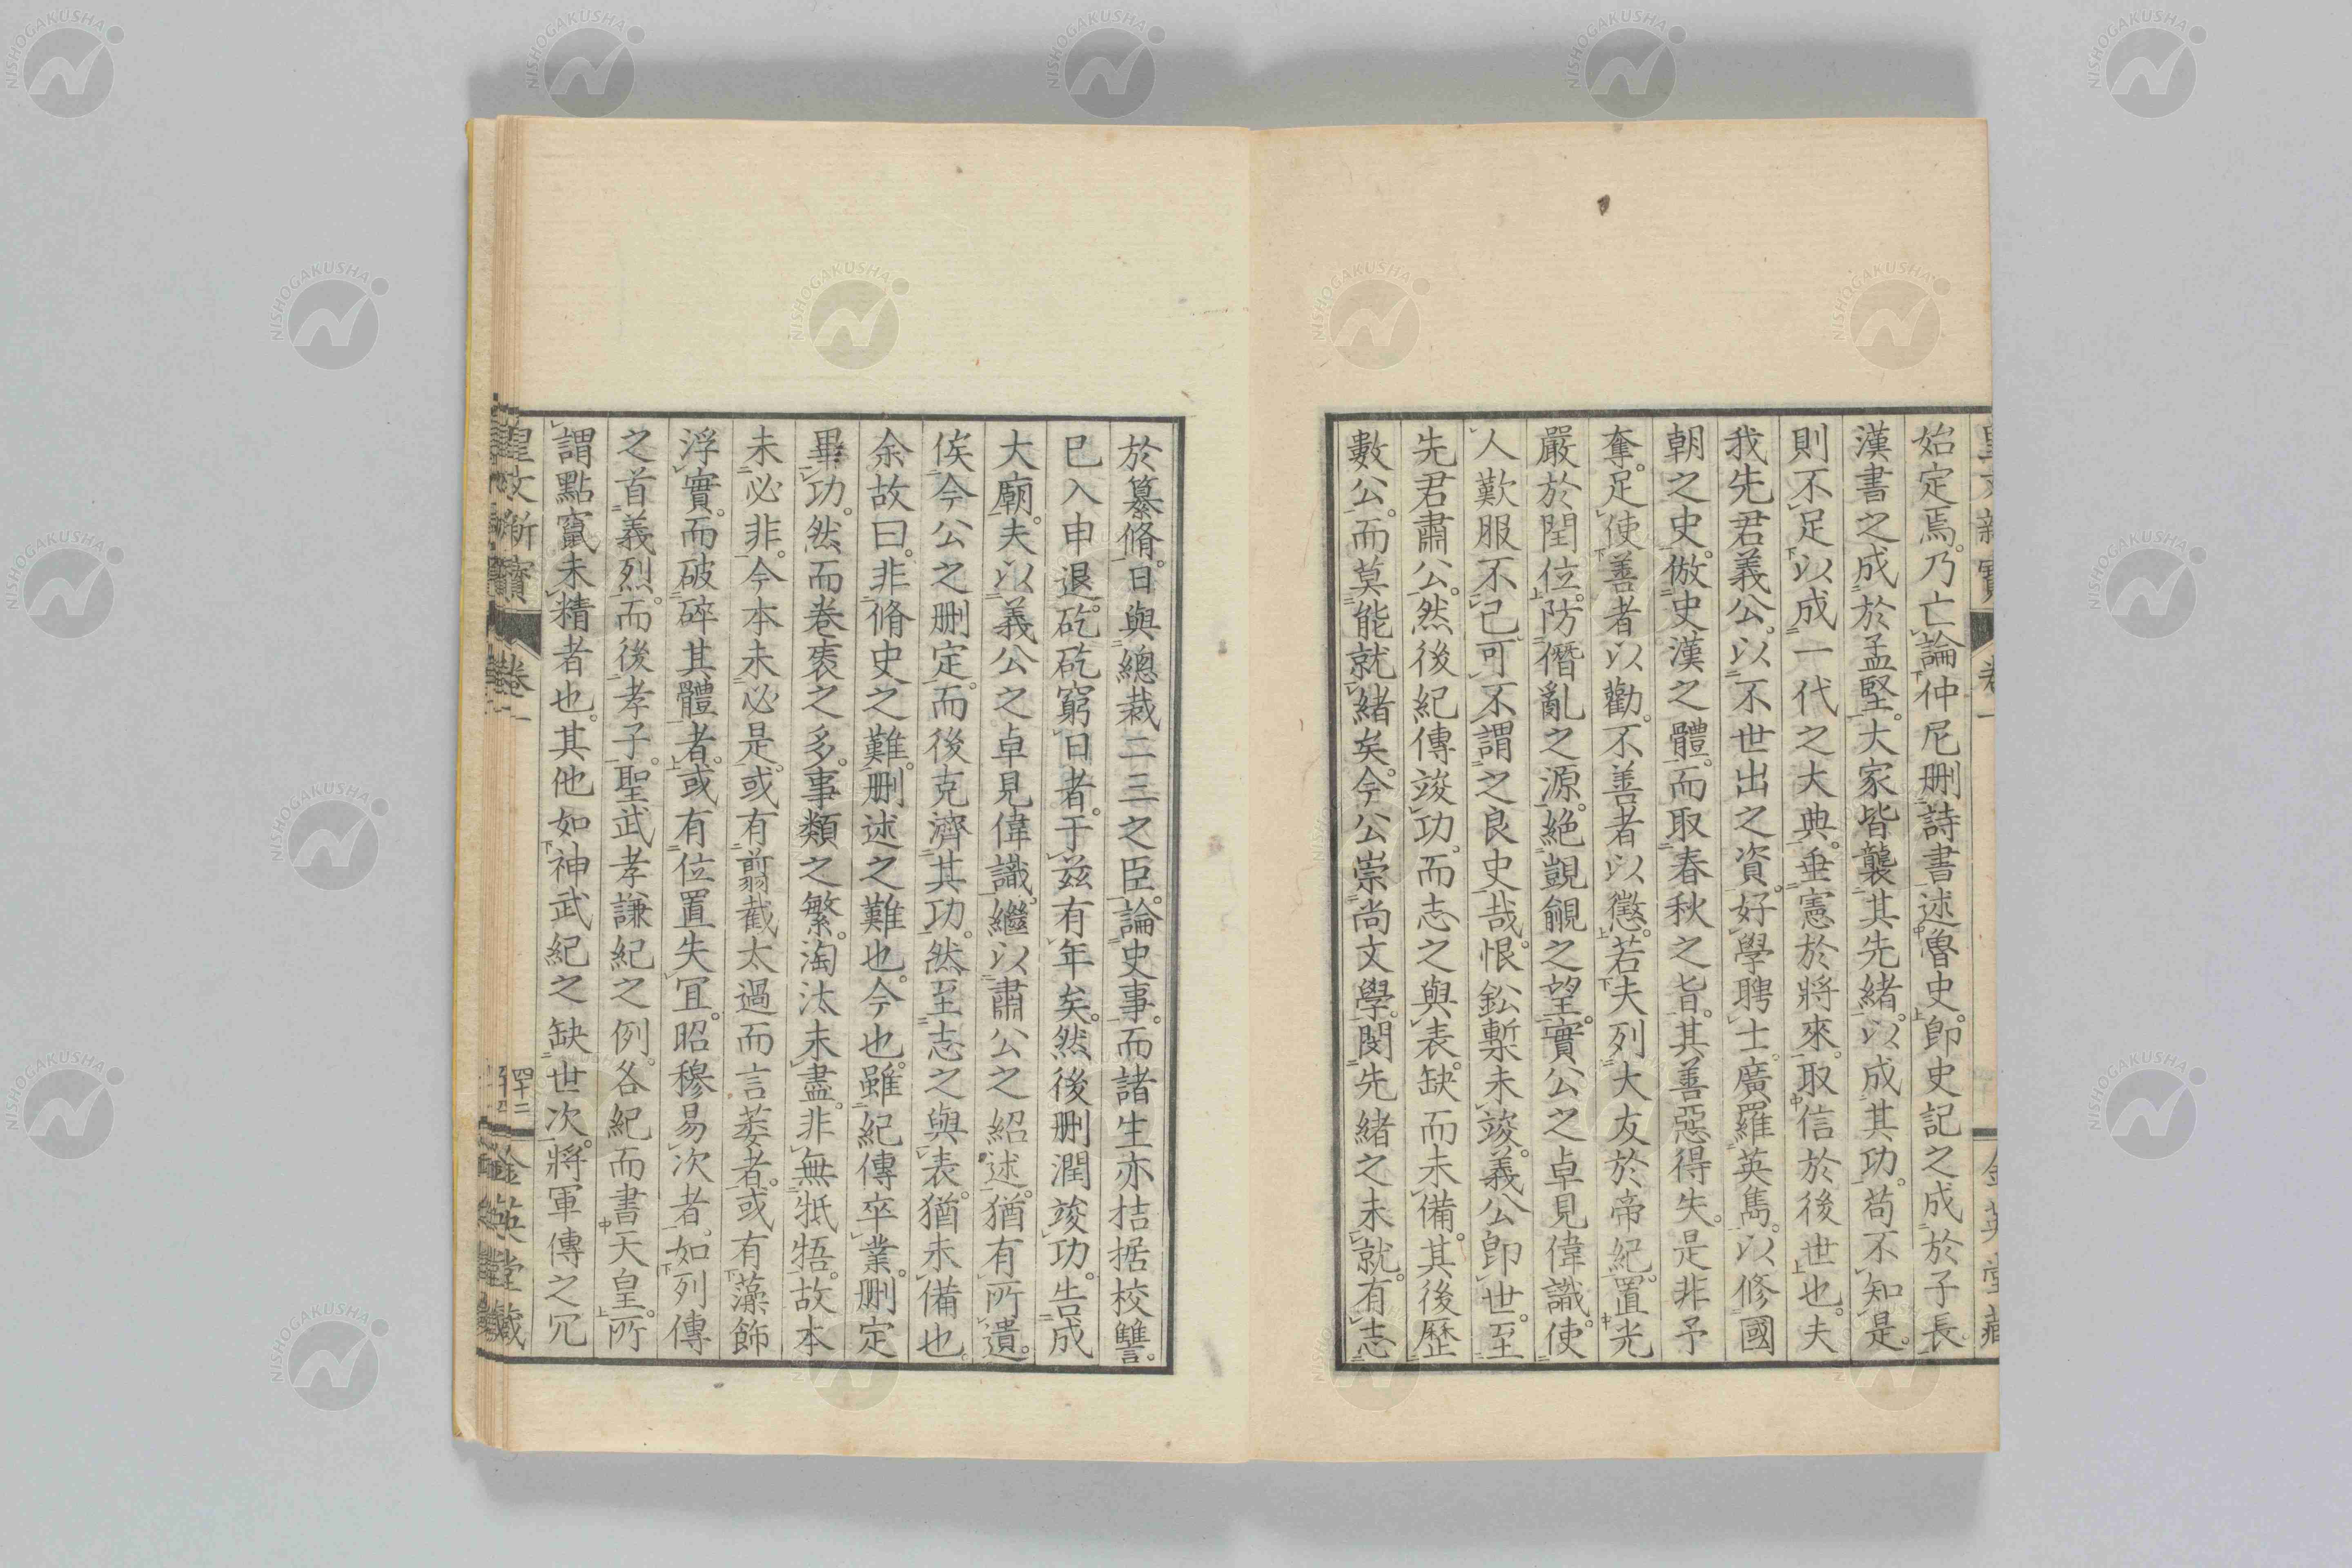 始定焉。乃亡論仲尼刪詩書述魯史。卽史記之成於子長。
漢書之成於孟堅。大家皆襲其先緒。以成其功。苟不知是。
則不足以成一代之大典。垂憲於將來。取信於後世也。夫
我先君義公。以不世出之資。好學聘士。廣羅英雋。以修國
朝之史。倣史漢之體。而取春秋之旨。其善惡得失。是非予
奪。足使善者以勸。不善者以懲。若夫列大友於帝紀。置光
嚴於閏位。防僭亂之源。絕覬覦之望。實公之卓見偉識。使
人歎服不已。可不謂之良史哉。恨鈆槧未竣。義公卽世。至
先君肅公。然後紀傳竣功。而志之與表。缺而未備。其後歷
數公。而莫能就緒矣。今公崇尚文學。閔先緒之未就。有志
於纂脩。日與總裁二三之臣。論史事。而諸生亦拮据校讐。
巳入申退。矻矻窮日者。于茲有年矣。然後刪潤竣功。告成
大廟。夫以義公之卓見偉識。繼以肅公之紹述。猶有所遺。
俟今公之刪定。而後克濟其功。然至志之與表。猶未備也。
余故曰。非脩史之難。刪述之難也。今也。雖紀傳卒業。刪定
畢功。然而卷袠之多。事類之繁。淘汰未盡。非無牴牾。故本
未必非。今本未必是。或有翦截太過而言萎者。或有藻飾
浮實。而破碎其體者。或有位置失冝。昭穆易次者。如列傳
之首義烈。而後孝子。聖武孝謙紀之例。各紀而書天皇。所
謂點竄未精者也。其他如神武紀之缺世次。將軍傳之冗
皇文新寶
卷一
四十二
金英堂藏
NISHOGAKUSHA